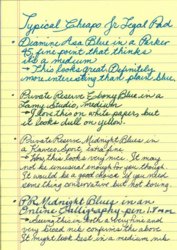 Typical Cheapo Jr Legal Pad
• Diamine Asa Blue in a Parker
45 fine point that thinks
it's a medium
→ This looks great. Definitely
more interesting than plain blue.
• Private Reserve Ebony Blue in a
Lamy Studio, medium
→ I love this on white paper, but
it looks dull on yellow.
• Private Reserve Midnight Blues in
a Kaweco Sport, extra fine
→ Now this looks very nice. It may
not be unusual enough for you though.
It would be a good choice if you need
something conservative but not boring.
• PR Midnight Blues in an
Online Calligraphy pen, 1.8 mm
→ Seeing this in both a very fine and
very broad nib confirms the above.
It might look best in a medium nib.